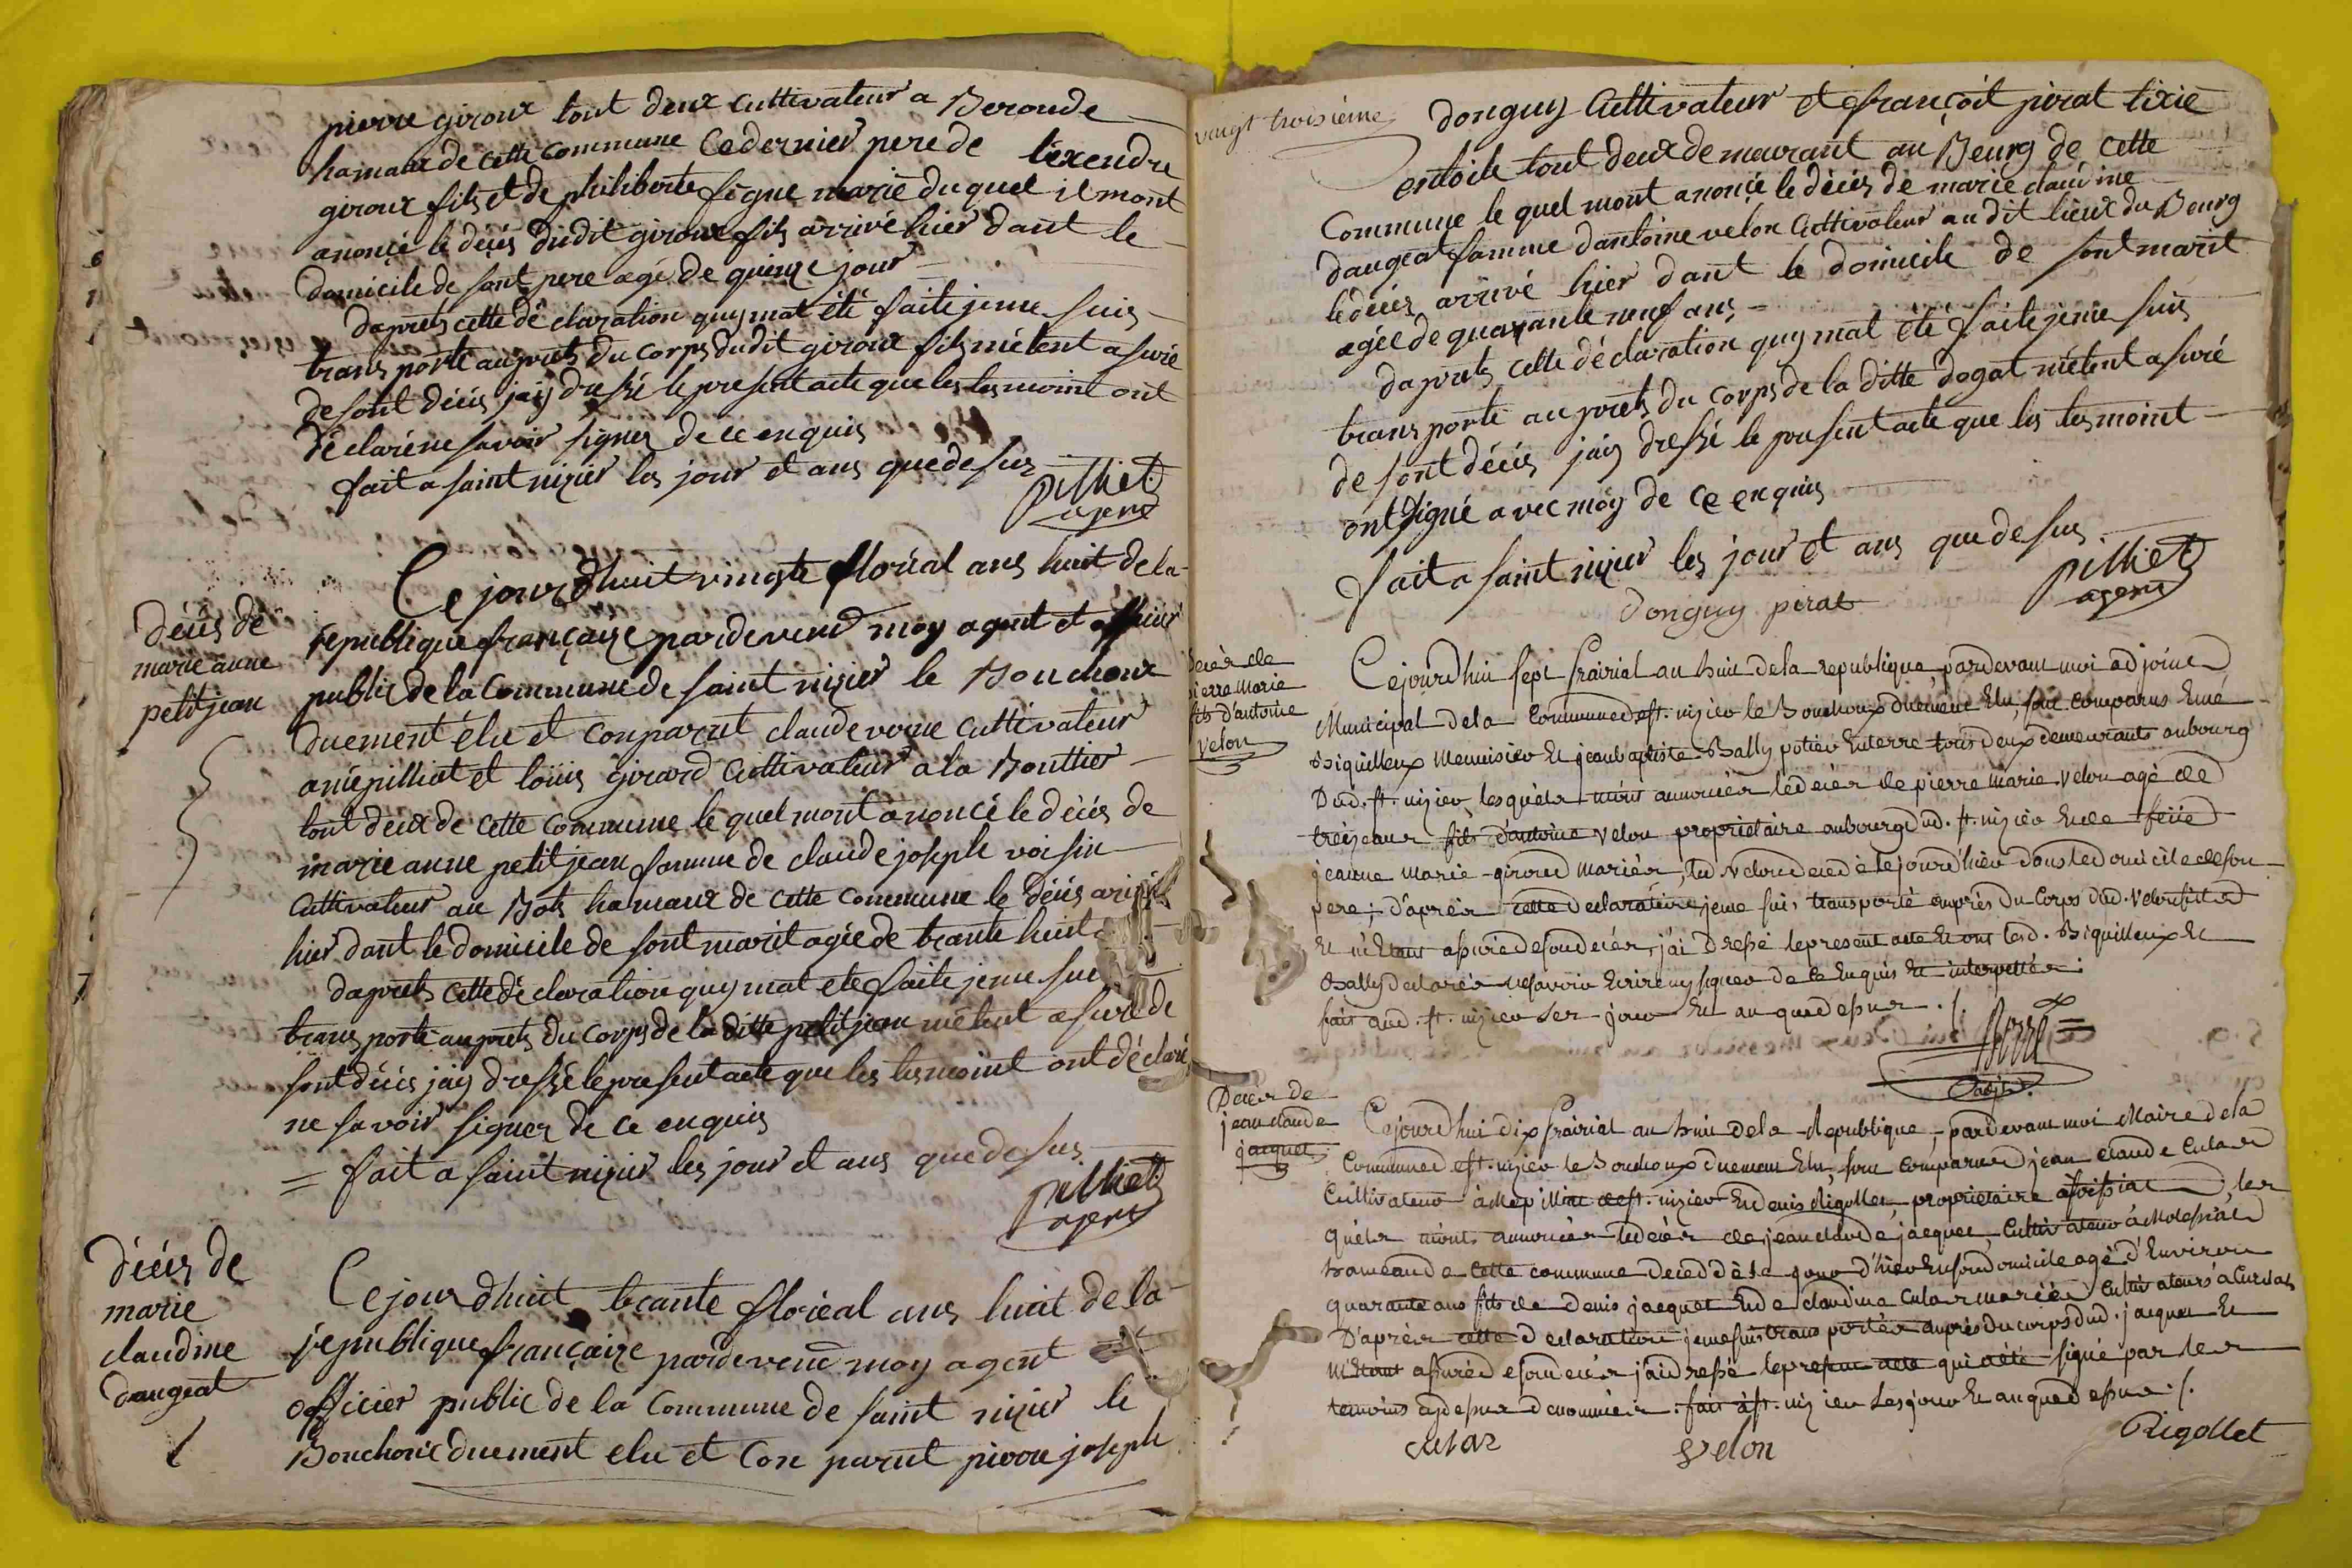 pierre giroux tout deux Cultivateur a Beroude
hamaux de cette commune Cedernier pere de lixendre
giroux fils et de philiberte figue marié duquel il mont
anoncé le décés dudit giroux fils arrivé hier dant le
domicile de sont pere agé de quinze jour
daprets cette déclaration quy mat été faite jeme suis
trans porté auprets du corps dudit giroux fils métent asuré
de sont décés jaij dressé le present acte que les tesmoint ont
déclaré ne savoir signer de ce enquis
fait a saint nizier les jour et ans que desus
pilliet
agent
décés de
marie anne
petitjean
Ce jourdhuit vingte floréal ans huit de la
republique françaize pardevend moy agent et officier
public de la Commune de saint nizier le Bouchoux
duement élu et conparut claude voyne cultivateur
a niépilliat et loüis girard cultivateur a la Bouttier
tout deux de cette commune le quel mont anoncé le décés de
marie anne petit jean famme de claude joseph voisin
Cultivateur au Bots hamaux de cette commune le décés arivé
hier dant le domicile de sont marit agée de trante huit
daprets cette déclaration quy mat ete faite jeme sui
trans porté auprets du corps de la ditte petitjean métent asuré de
sont décés jaij dressé le present acte que les tesmoint ont déclaré
ne savoir signer de ce enquis
= fait a saint nizier les jour et ans que desus
pilliet
agent
décés de
marie
claudine
daugeat
Ce jour dhuit trante floréal ans huit de la
republique françaize pardevend moy agent
officier public de la Commune de saint nizier le
Bouchoux duement elu et Con parut pierre joseph
vingt troisième
donguy Cultivateur et françoit perat tixié
entoile tout deux demeurant au Beurg de cette
Commune le quel mont anonçé le décés de marie claudine
daugeat famme dantoine velon Cultivateur au dit lieux du Bourg
le décés arrivé hier dant le domicile de sont marit
agée de quarante neuf ans =
daprets cette déclaration quy mat été faite jeme suis
trans porté au prets du corps de la ditte dogat métent asuré
de sont décés jaij dressé le present acte que les tesmoint
ont signé avec moy de ce enquis
fait a saint nizier les jour et ans que desus
donguy perat
pilliet
agent
decés de
pierre Marie
fils d'antoine
velon
Cejourd'hui sept prairial an huit dela republique, pardevant moi adjoint
Municipal dela Commune de st. nizier le Bouchoux duement Elu, sont comparus Emé
Biquilleux Menuisier Et jeanbaptiste Bally potier Enterre tous deux demeurants aubourg
Dud. st. nizier, lesquels m'ont annoncés ledecés de pierre Marie velon agé de
treizeans fils d'antoine velon proprietaire aubourg dud. st. nizier Et de feüe
jeanne Marie giroud mariés, led velon decedé lejourd'hier dans ledomicile deson
pere; d'aprés cette declaration jeme suis transporté auprés du Corps dud. velon fils
Et m'Etant assuré deson decés, j'ai Dressé lepresent acte Et ont lesd. Biquilleux Et
Bally declarés nesavoir Ecrire ny signer de ce Enquis Et interpellés
fait aud. st. nizier Les jour Et an que dessus ./.
adjt.
Decés de
jean claude
jacquet
Cejourd'hui dix prairial an huit de la republique, pardevant moi Maire dela
Commune de st. nizier le Bouchoux duement Elu, sont comparus jean claude Cular
Cultivateur à Mépilliat de st. nizier Et denis Rigollet, proprietaire , les
quels m'ont annoncés ledecés de jean claude jacquet, Cultivateur à Molessiat
hameau de cette commune decedé le jour d'hier Enson domicile agé d'Environ
quarante ans fils de denis jacquet Et de claudine Cular mariés Cultivateurs a
D'aprés cette declaration jeme suis transportés auprés du corps dud. jacquet Et
m'Etant assuré deson decés j'ai dressé lepresent acte qui a été signé par les
temoins cydessus denommés. fait à st. nizier Les jour Et an que dessus ./.
cular
velon
Rigollet